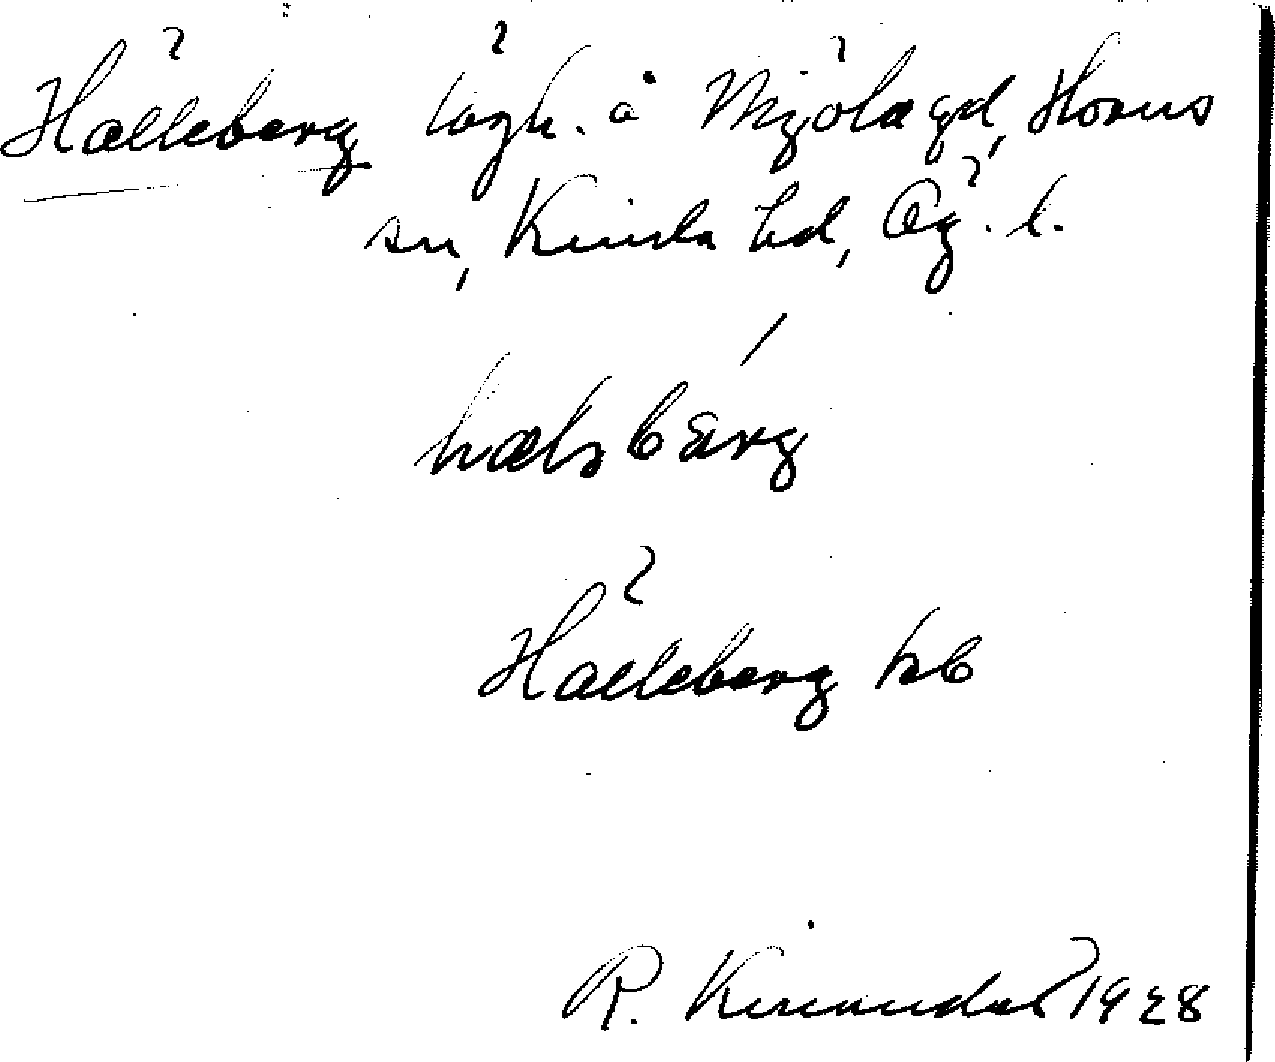 Hälleberg lägh. å Mjölagd, Horns
sn, Kinda hd, Ög. l.
hälsbärg
Hälleberg kb
R. 1928